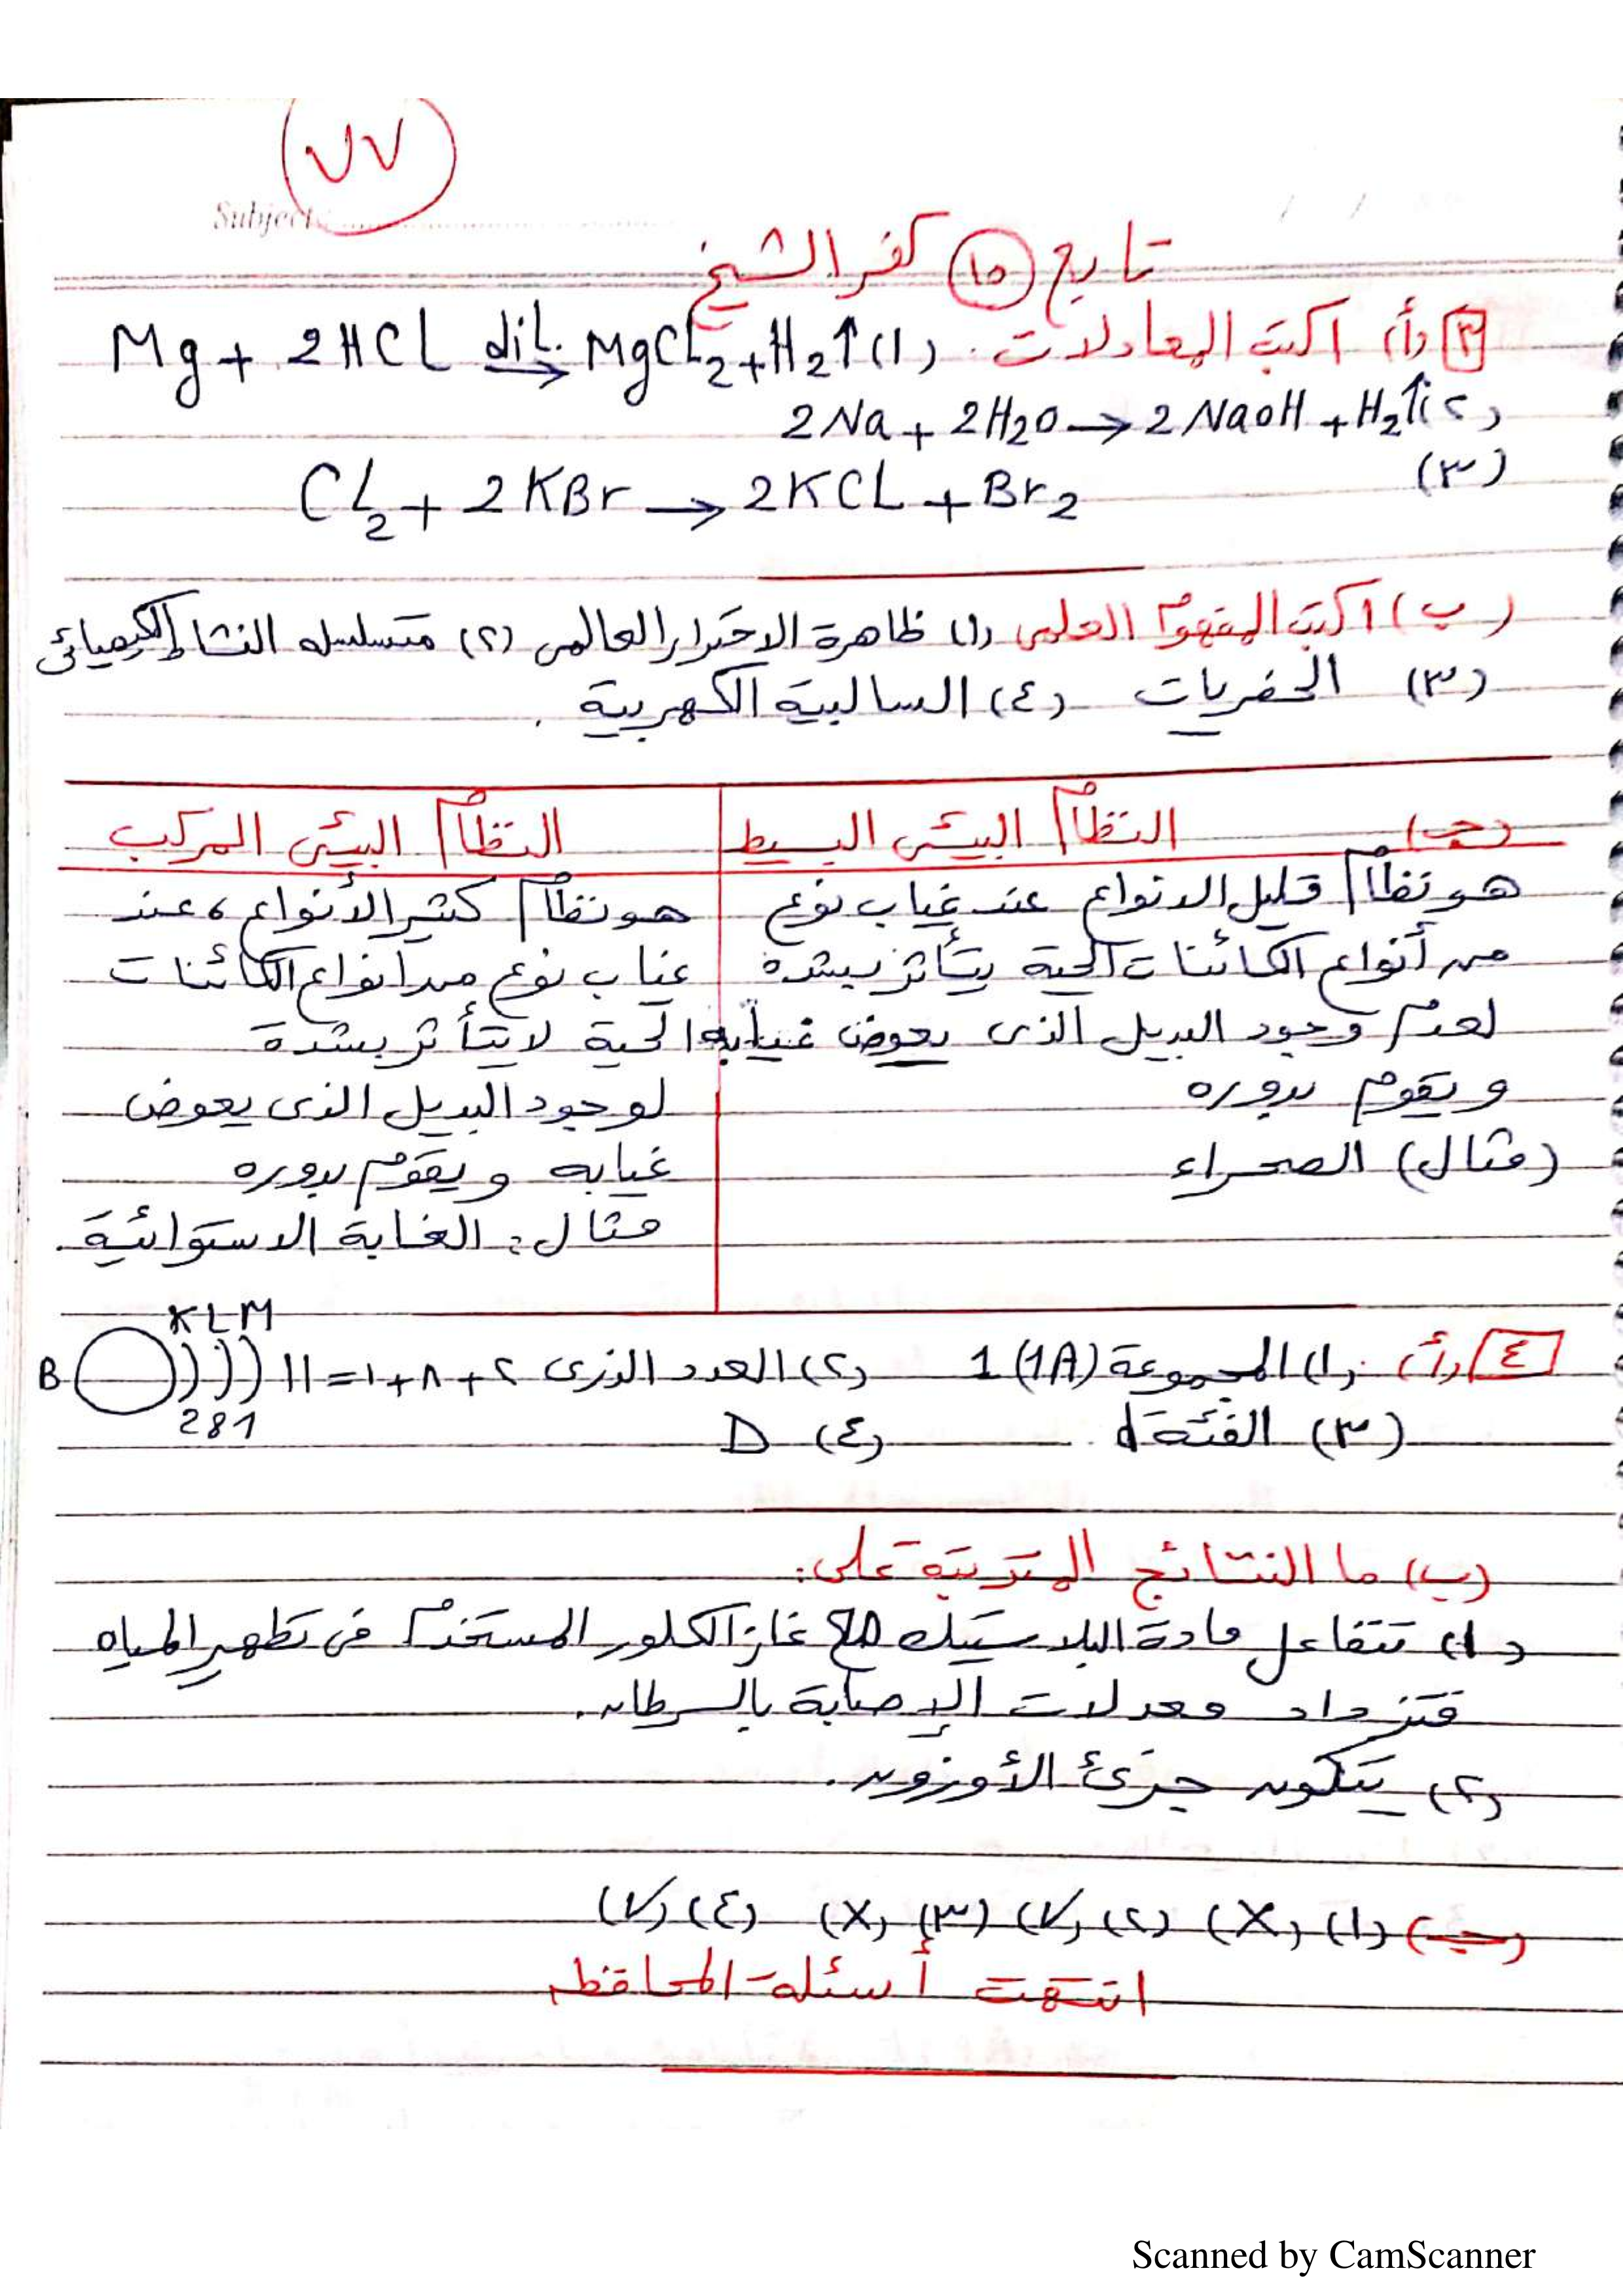 ٧٧
Subject:
تابع (١٥) كفر الشيخ
٣ (أ) اكتب المعادلات. (١) Mg + 2HCl dil. → MgCl2 + H2↑
(٢) 2Na + 2H2O → 2NaOH + H2↑
(٣) Cl2 + 2KBr → 2KCl + Br2
(ب) اكتب المفهوم العلمى (١) ظاهرة الاحترار العالمى (٢) متسلسلة النشاط الكيميائى
(٣) الحفريات (٤) السالبية الكهربية.
(جـ) النظام البيئى البسيط
هو نظام قليل الانواع عند غياب نوع
من أنواع الكائنات الحية يتأثر بشدة
لعدم وجود البديل الذى يعوض غيابه
ويقوم بدوره
(مثال) الصحراء
النظام البيئى المركب
هو نظام كثير الأنواع، عند
غياب نوع من انواع الكائنات
الحية لا يتأثر بشدة
لوجود البديل الذى يعوض
غيابه ويقوم بدوره
مثال: الغابة الاستوائية.
٤ (أ) (١) المجموعة 1 (1A) (٢) العدد الذرى ٢ + ٨ + ١ = ١١
K L M
B
2 8 1
(٣) الفئة d (٤) D
(ب) ما النتائج المترتبة على:
(١) تتفاعل مادة البلاستيك مع غاز الكلور المستخدم فى تطهير المياه
فتزداد معدلات الإصابة بالسرطان.
(٢) يتكون جزئ الأوزون.
(جـ) (١) (X) (٢) (√) (٣) (X) (٤) (√)
انتهت أسئلة المحافظة
Scanned by CamScanner